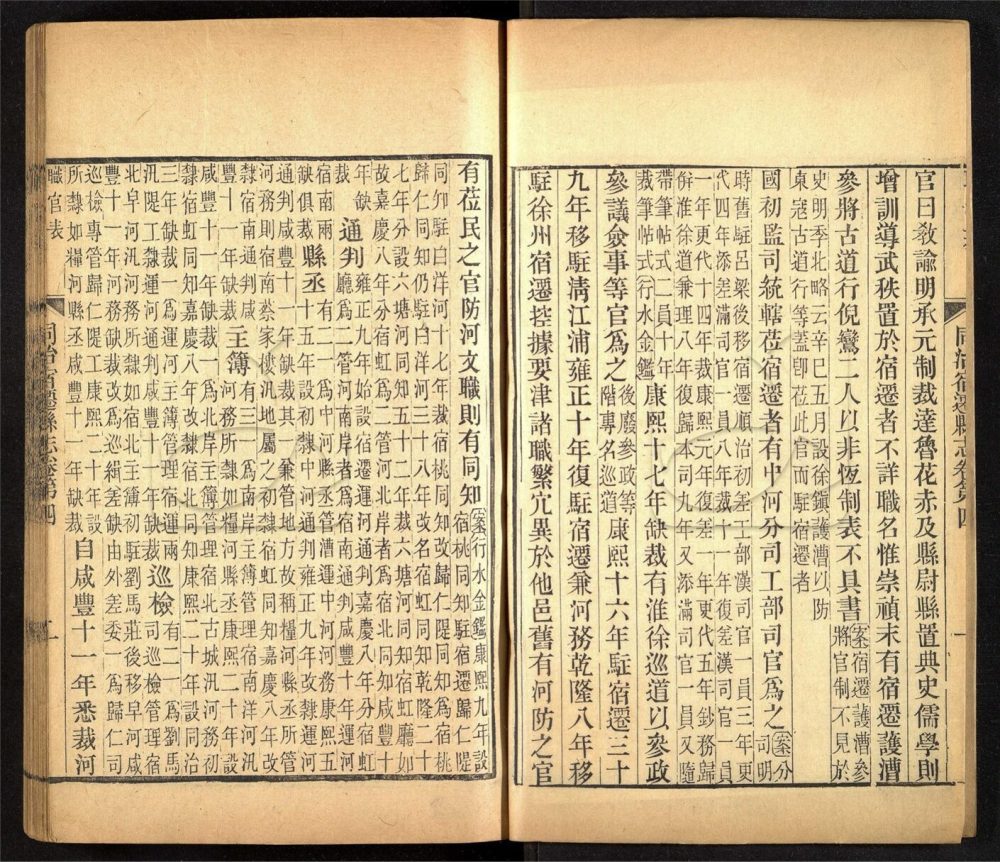 官曰教諭明承元制裁達魯花赤及縣尉縣置典史儒學則
增訓導武秩置於宿遷者不詳職名惟崇禎末有宿遷護漕
參將古道行倪鸞二人以非恆制表不具書案宿遷護漕參
將官制不見於
史明季北略云辛巳五月設徐鎭護漕以防
東寇古道行等蓋卽莅此官而駐宿遷者
國初監司統轄莅宿遷者有中河分司工部司官爲之案分
司明
時舊駐呂梁後移宿遷順治初差工部漢司官一員三年更
代四年添差滿司官一員八年裁十一年復差漢司官一員
一年更代十四年裁康熙元年復差一年更代五年鈔務歸
併淮徐道兼理八年復歸本司九年又添滿司官一員又隨
帶筆帖式二員十年
裁筆帖式行水金鑑
康熙十七年缺裁有淮徐巡道以參政
參議僉事等官爲之後廢參政等
階專名巡道
康熙十六年駐宿遷三十
九年移駐淸江浦雍正十年復駐宿遷兼河務乾隆八年移
駐徐州宿遷控據要津諸職繁宂異於他邑舊有河防之官
同治宿遷縣志卷第四
有莅民之官防河文職則有同知案行水金鑑康熙九年設
宿桃同知駐宿遷歸仁隄
同知駐白洋河十七年裁宿桃同知改歸仁隄同知爲宿桃
歸仁同知仍駐白洋河三十八年改名宿虹同知乾隆二十
七年分設六塘河同知五十二年裁六塘河同知宿虹廳如
故嘉慶八年分宿虹爲二管河北岸者爲宿北同知咸豐十
年缺
裁
通判雍正九年始設宿遷運河通判嘉慶八年分宿虹
廳爲二管河南岸者爲宿南通判咸豐十年運河
宿南兩
缺俱裁
縣丞有三一爲中河縣丞管漕運中河務康熙五
十五年設初隸中河通判雍正九年改隸運河
通判咸豐十一年缺裁其一兼管地方故稱糧河縣丞所管
河務則宿南蔡家樓汛地屬之初隸宿虹同知嘉慶八年改
隸宿南通判咸
豐十一年缺裁
主簿有三一如南岸主簿管理宿南洋河汛
河務所隸如糧河縣丞康熙二十年設
咸豐十一年缺裁一爲北岸主簿管理宿北古城汛河務初
隸宿虹同知嘉慶八年改隸宿北同知康熙二十年設同治
三年缺裁一爲運河主簿管理宿運
汛隄工隸運河通判咸豐十一年缺裁
巡檢有二一爲劉馬
莊司巡檢管理宿
北皁河汛河務所隸如宿北主簿初駐劉馬莊後移皁河咸
豐十一年河務缺裁改爲巡緝差缺由外差委一爲歸仁司
巡檢專管歸仁隄工康熙二十年設
所隸如糧河縣丞咸豐十一年缺裁
自咸豐十一年悉裁河
職官表
同治宿遷縣志卷第四
一